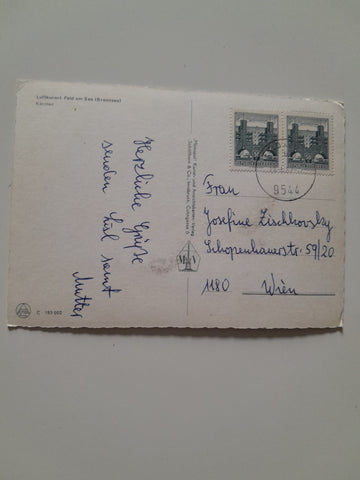 Luftkurort Feld am See (Brennsee)
Kärnten
Herzliche Grüße
senden
samt
Mutter
C 193 002
9544
Frau
Josefine Zischkovszky
Schopenhauerstr. 59/20
1180 Wien